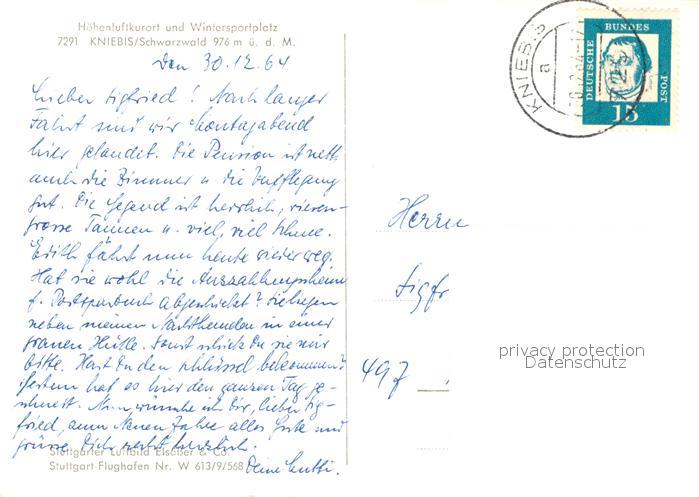 Höhenluftkurort und Wintersportplatz
7291 KNIEBIS/Schwarzwald 976 m ü. d. M.
Den 30.12.64
Lieber Sigfried! Nach langer
Fahrt sind wir Montagabend
hier gelandet. Die Pension ist nett
auch die Zimmer u die Verpflegung
gut. Die Gegend ist herrlich, riesen-
grosse Tannen u. viel, viel Schnee.
Edith fährt nun heute wieder weg.
Hat sie wohl die Auszahlungsscheine
f. Postsparbuch abgeschickt? Sie liegen
neben meinen Nachthemden in einer
grauen Hülle. Sonst schick Du sie mir
bitte. Hast Du den Schlüssel bekommen?
Gestern hat es hier den ganzen Tag ge-
schneit. Nun wünsche ich Dir, lieber Sig-
fried, zum Neuen Jahre alles Gute und
grüsse Dich recht herzlich.
Deine Mutti.
Stuttgarter Luftbild Elsäßer & Co.
Stuttgart-Flughafen Nr. W 613/9/568
KNIEBIS
a
DEUTSCHE
BUNDES
POST
15
Herrn
Sigfr
497
privacy protection
Datenschutz